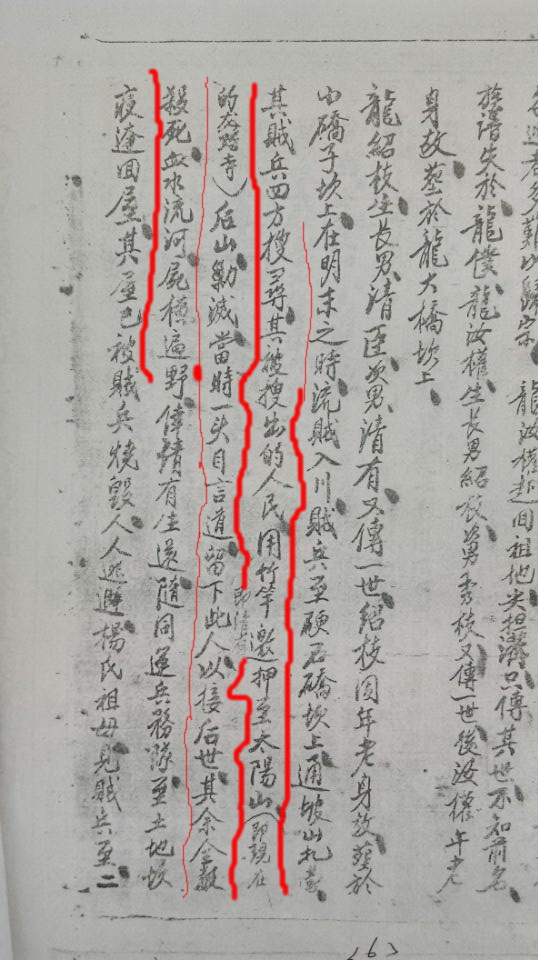 龍汝權起回祖他失担濟只傳其世不知前名
族譜失於龍僕龍汝權生長男紹枝次男秀枝又傳一世後汝權年老
身故塟於龍大橋坎上
龍紹枝生長男清臣次男清有又傳一世紹枝因年老身故塟於
山礄子坎上在明末之時流賊入川賊兵至硬石礄坎上通坡山扎營
其賊兵四方搜尋其被搜出的人民用竹竿邀押至太陽山(即現在
的太陽寺)后山勦滅當時一头目言道留下此人以接后世其余全數
即清有
殺死血水流河屍橫遍野倖清有生還隨同逆兵務隊至土地坎
夜逢回屋其屋已被賊兵燒毀人人逃避楊氏祖母見賊兵至二
<6>